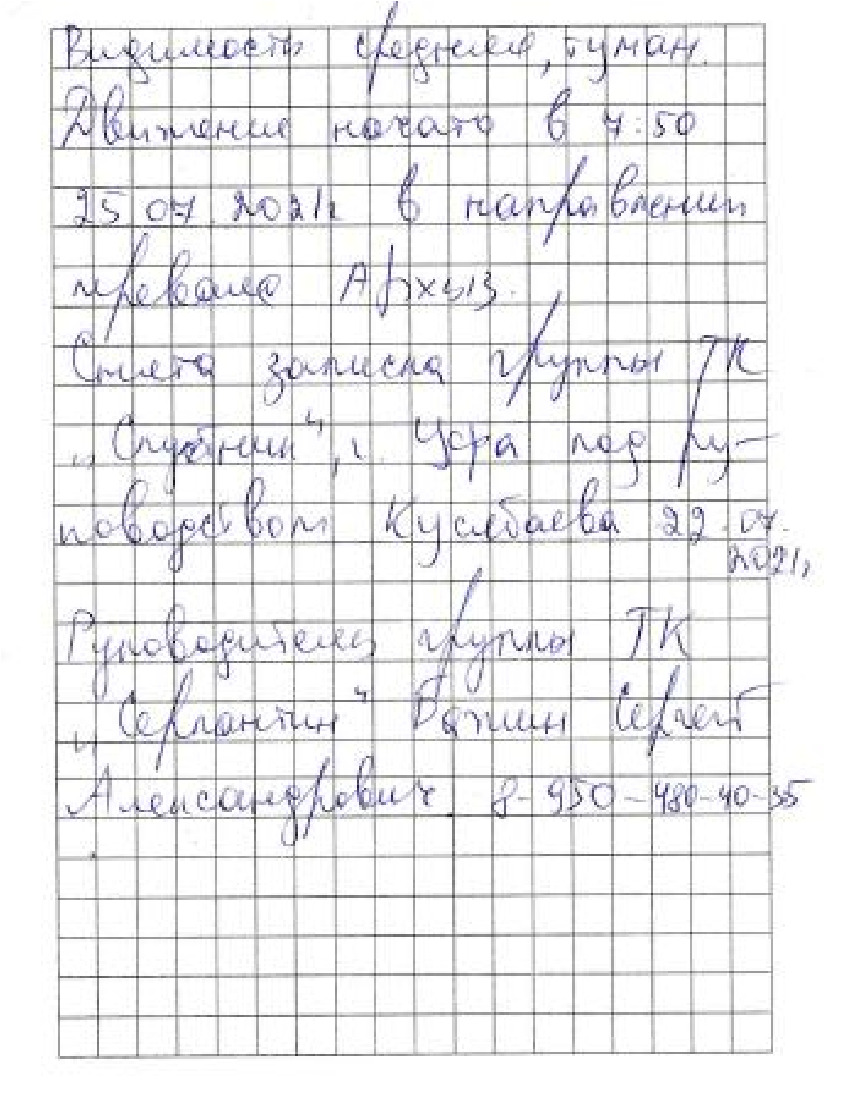 Видимость средняя, туман.
Движение начато в 7:50
25.07.2021г. в направлении
перевала Архыз.
Снята записка группы ТК
„Спутник", г. Уфа под ру-
ководством Кусябаева 22.07.
2021г.
Руководитель группы ТК
„Серпантин" Важин Сергей
Александрович 8-950-480-40-35